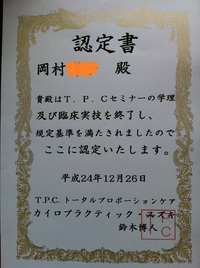 認定書
岡村 殿
貴殿はT.P.Cセミナーの学理
及び臨床実技を終了し、
規定基準を満たされましたので
ここに認定いたします。
平成24年12月26日
T.P.C.トータルプロポーションケア
カイロプラクティック・スズキ
鈴木博人